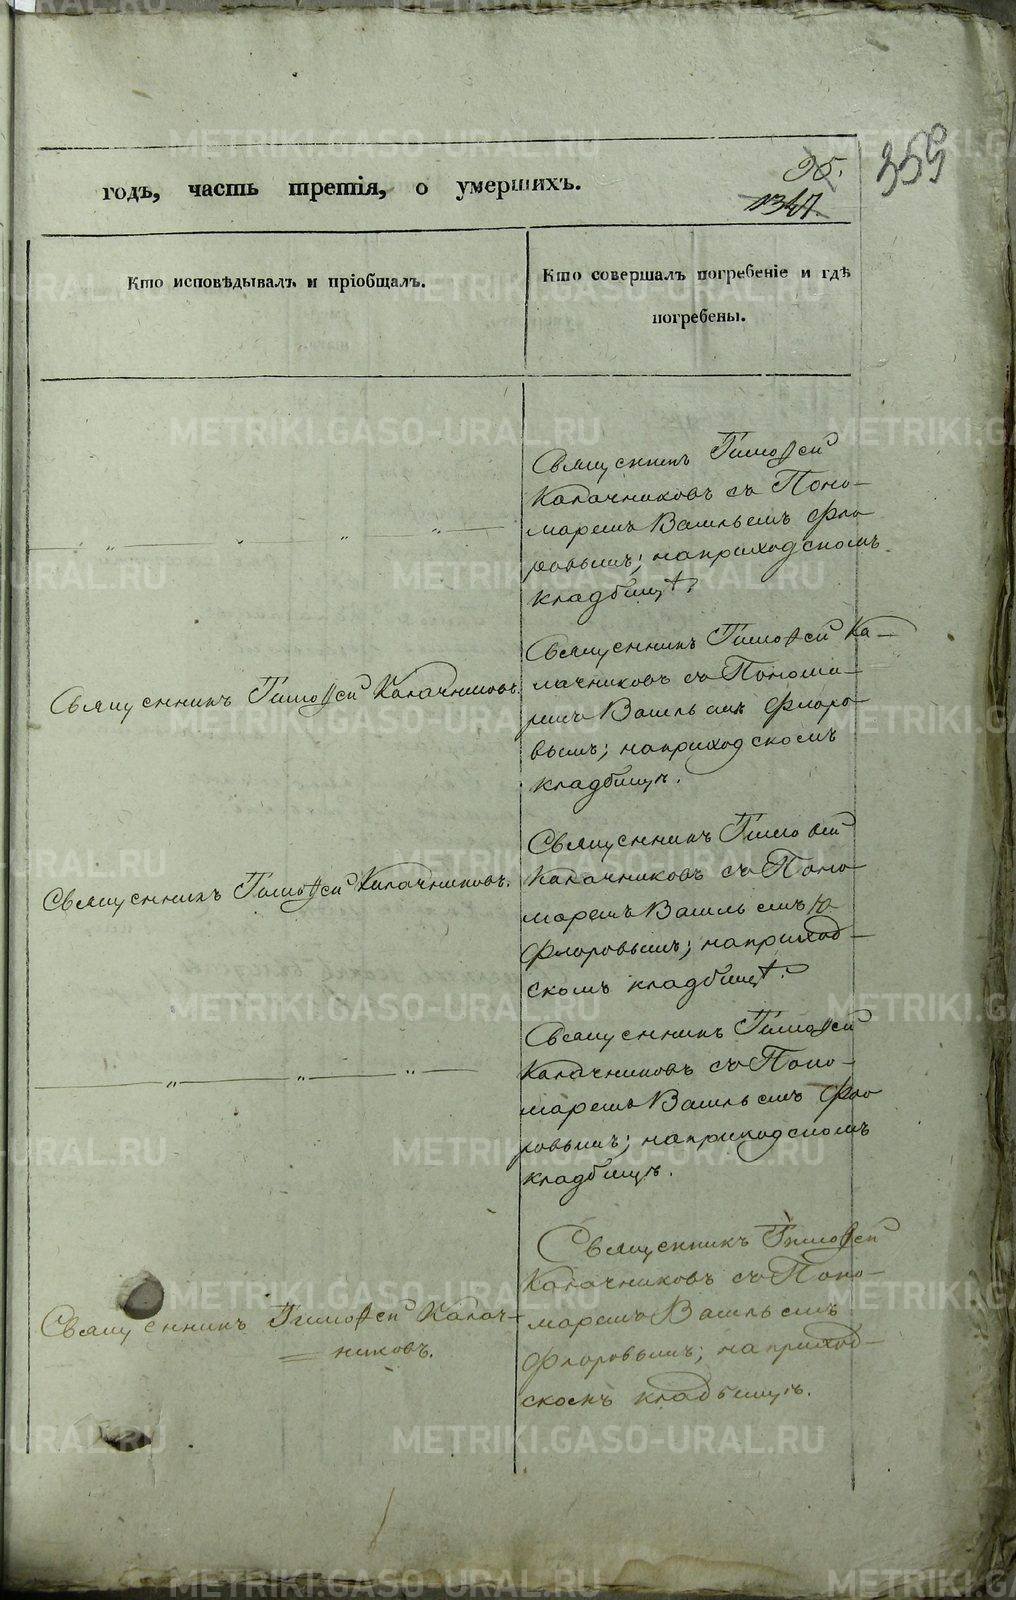 годъ, часть третія, о умершихъ.
95.
1347.
359
Кто исповѣдывалъ и пріобщалъ.
Кто совершалъ погребеніе и гдѣ
погребены.
Священникъ Тимоѳей
Калачниковъ съ Поно-
маремъ Васильемъ Фло
ровымъ; наприходскомъ
кладбищѣ.
Священникъ Тимоѳей Калачниковъ.
Священникъ Тимоѳей Ка-
лачниковъ съ Понома-
ремъ Васильемъ Флоро
вымъ; наприходскомъ
кладбищѣ.
Священникъ Тимоѳей Калачниковъ.
Священникъ Тимоѳей
Калачниковъ съ Поно
маремъ Васильемъ
Флоровымъ; наприход-
скомъ кладбищѣ.
Священникъ Тимоѳей
Калачниковъ съ Поно-
маремъ Васильемъ Фло
ровымъ; наприходскомъ
кладбищѣ.
Священникъ Тимоѳей Калач-
никовъ.
Священникъ Тимоѳей
Калачниковъ съ Поно-
маремъ Васильемъ
Флоровымъ; наприход-
скомъ кладбищѣ.
METRIKI.GASO-URAL.RU